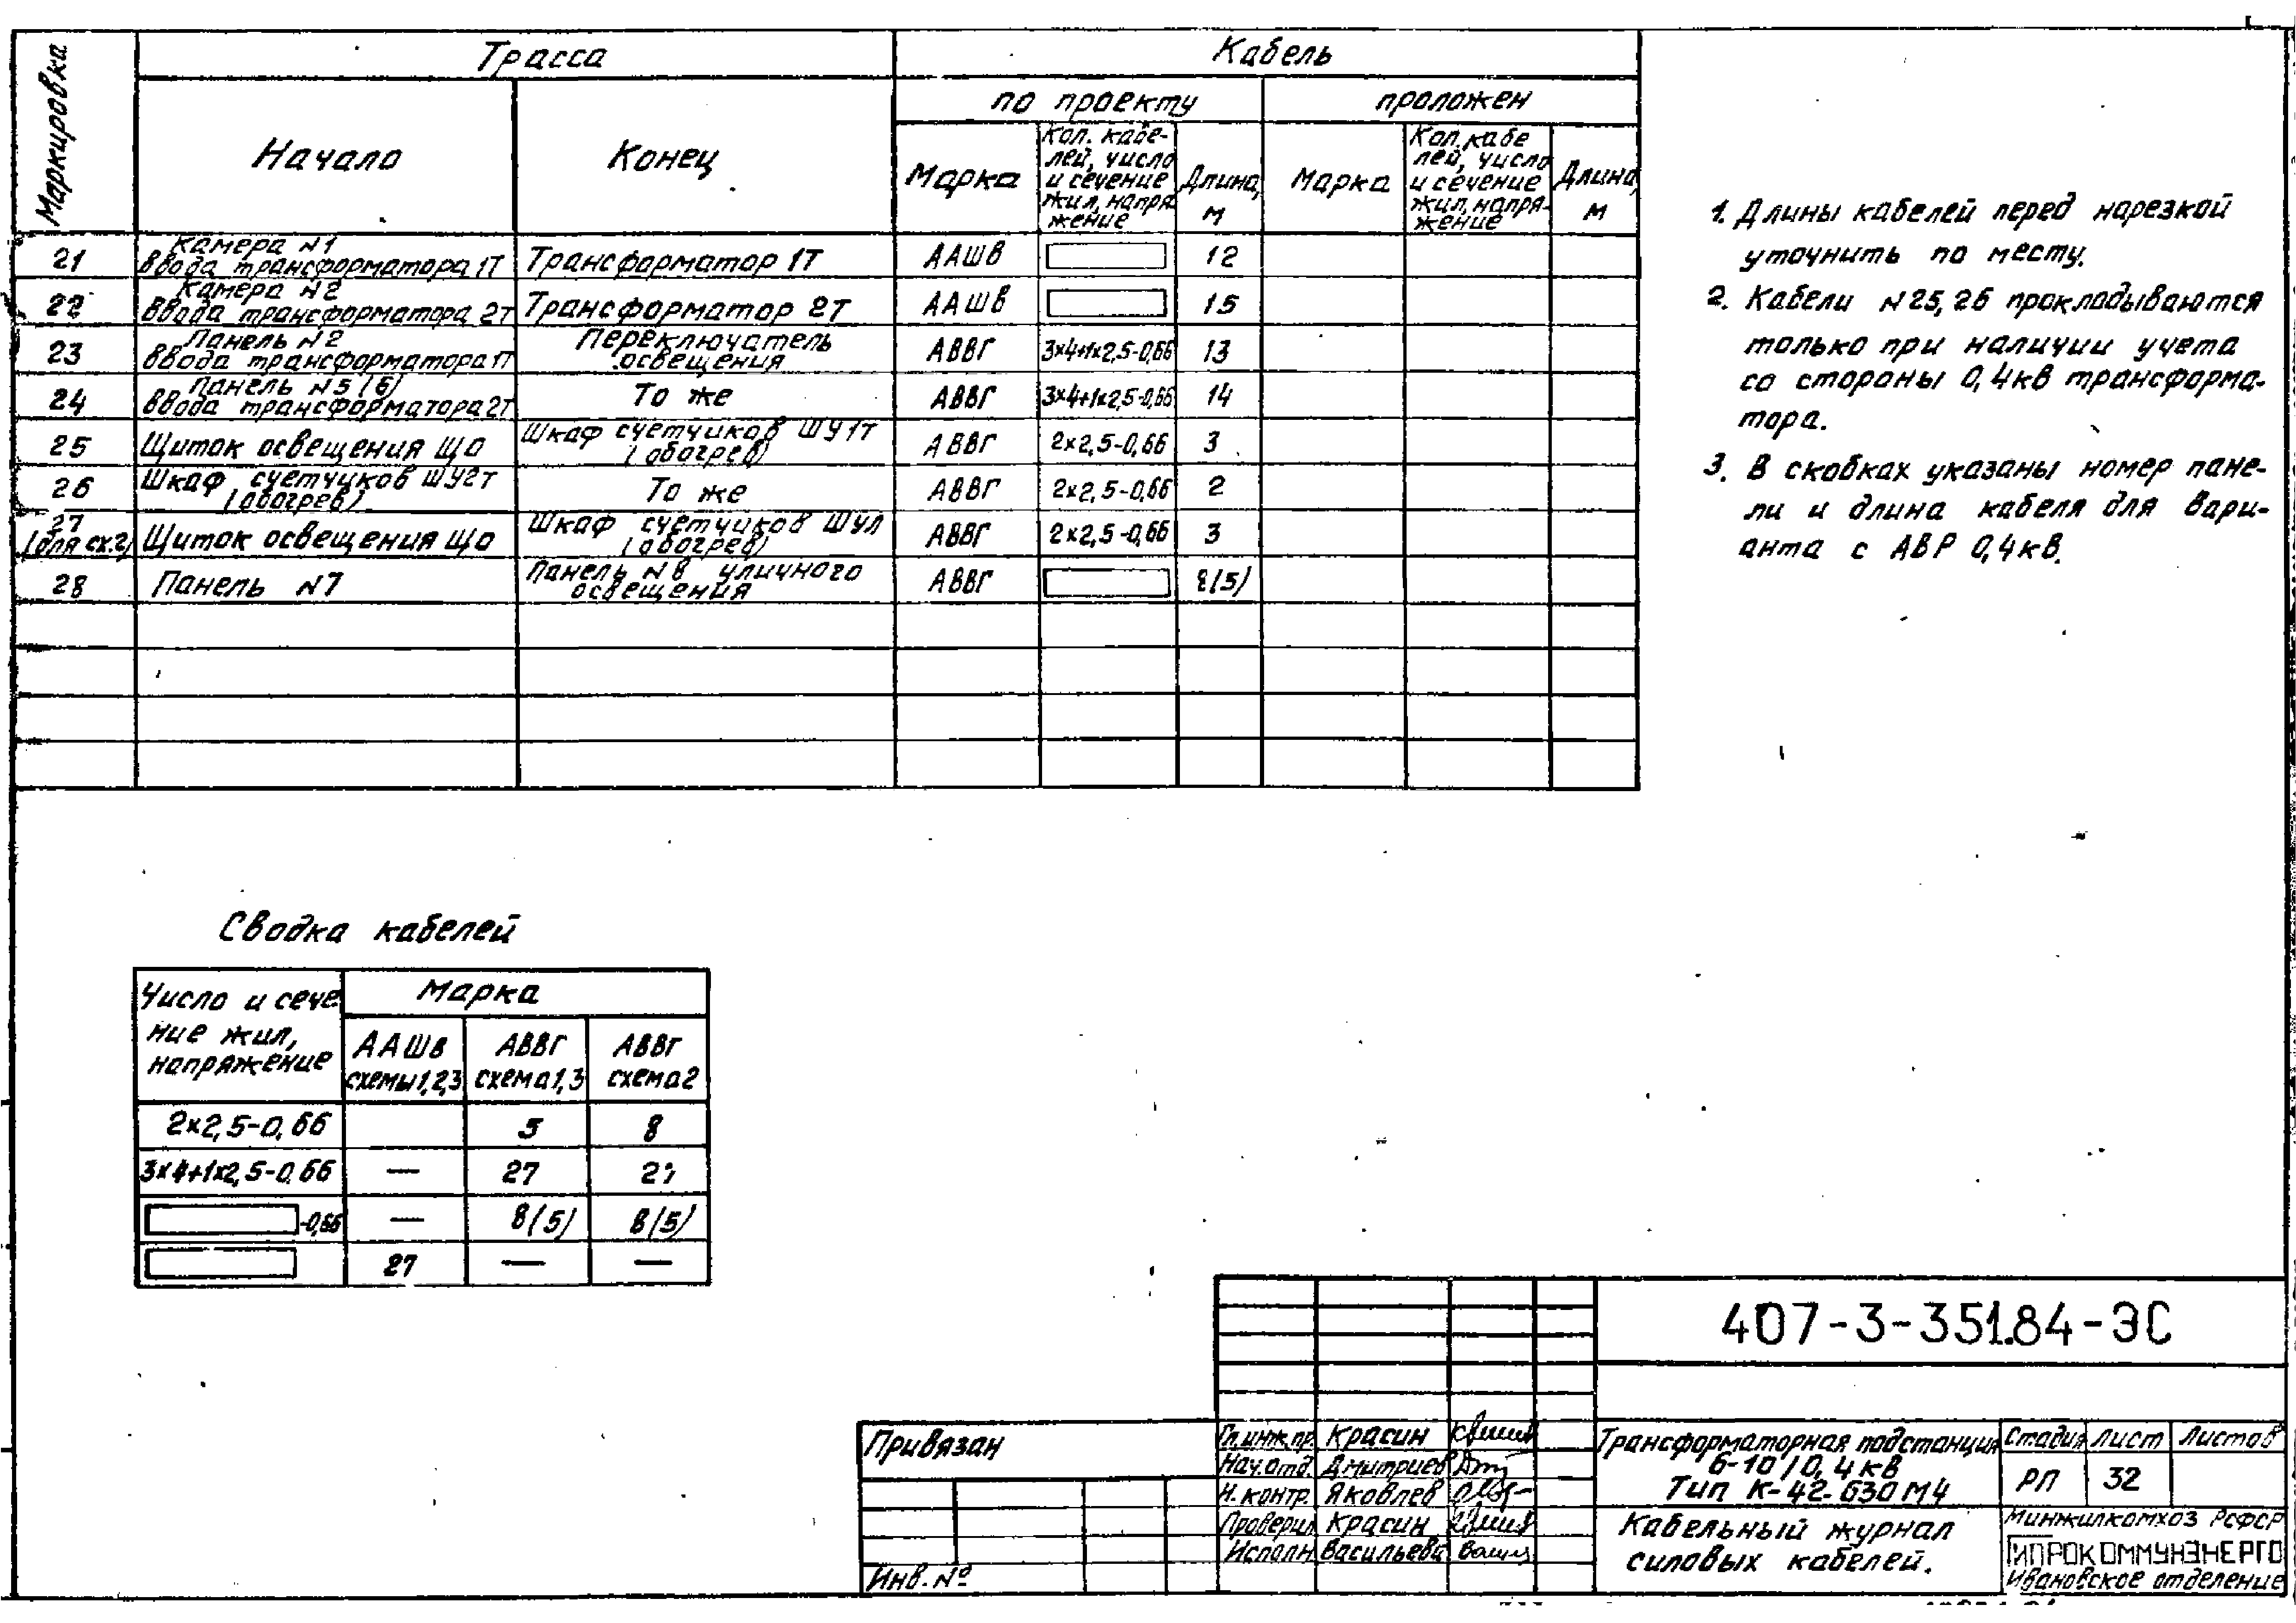 Маркировка
Трасса
Кабель
Начало
Конец
по проекту
проложен
Марка
Кол. кабе-
лей, число
и сечение
жил, напря
жение
Длина,
м
Марка
Кол. кабе
лей, число
и сечение
жил, напря-
жение
Длина,
м
21
Камера N1
ввода трансформатора 1Т
Трансформатор 1Т
ААШВ
12
22
Камера N2
ввода трансформатора 2Т
Трансформатор 2Т
ААШВ
15
23
Панель N2
ввода трансформатора 1Т
Переключатель
освещения
АВВГ
3х4+1х2,5-0,66
13
24
Панель N5 (6)
ввода трансформатора 2Т
То же
АВВГ
3х4+1х2,5-0,66
14
25
Щиток освещения ЩО
Шкаф счетчиков ШУ1Т
(обогрев)
АВВГ
2х2,5-0,66
3
26
Шкаф счетчиков ШУ2Т
(обогрев)
То же
АВВГ
2х2,5-0,66
2
27
(для сх.2)
Щиток освещения ЩО
Шкаф счетчиков ШУЛ
(обогрев)
АВВГ
2х2,5-0,66
3
28
Панель N7
Панель N8 уличного
освещения
АВВГ
8(5)
1. Длины кабелей перед нарезкой
уточнить по месту.
2. Кабели N25,26 прокладываются
только при наличии учета
со стороны 0,4кВ трансформа-
тора.
3. В скобках указаны номер пане-
ли и длина кабеля для вари-
анта с АВР 0,4кВ.
Сводка кабелей
Число и сече
ние жил,
напряжение
Марка
ААШВ
схемы 1,2,3
АВВГ
схема 1,3
АВВГ
схема 2
2х2,5-0,66
5
8
3х4+1х2,5-0,66
—
27
27
-0,66
—
8(5)
8(5)
27
—
—
407-3-351.84-ЭС
Привязан
Инв. №
Гл.инж.пр. Красин
Нач.отд. Дмитриев
Н.контр. Яковлев
Проверил Красин
Исполн. Васильева
Трансформаторная подстанция
6-10/0,4кВ
Тип К-42-630М4
Стадия
Лист
Листов
РП
32
Кабельный журнал
силовых кабелей.
Минжилкомхоз РСФСР
ГИПРОКОММУНЭНЕРГО
Ивановское отделение